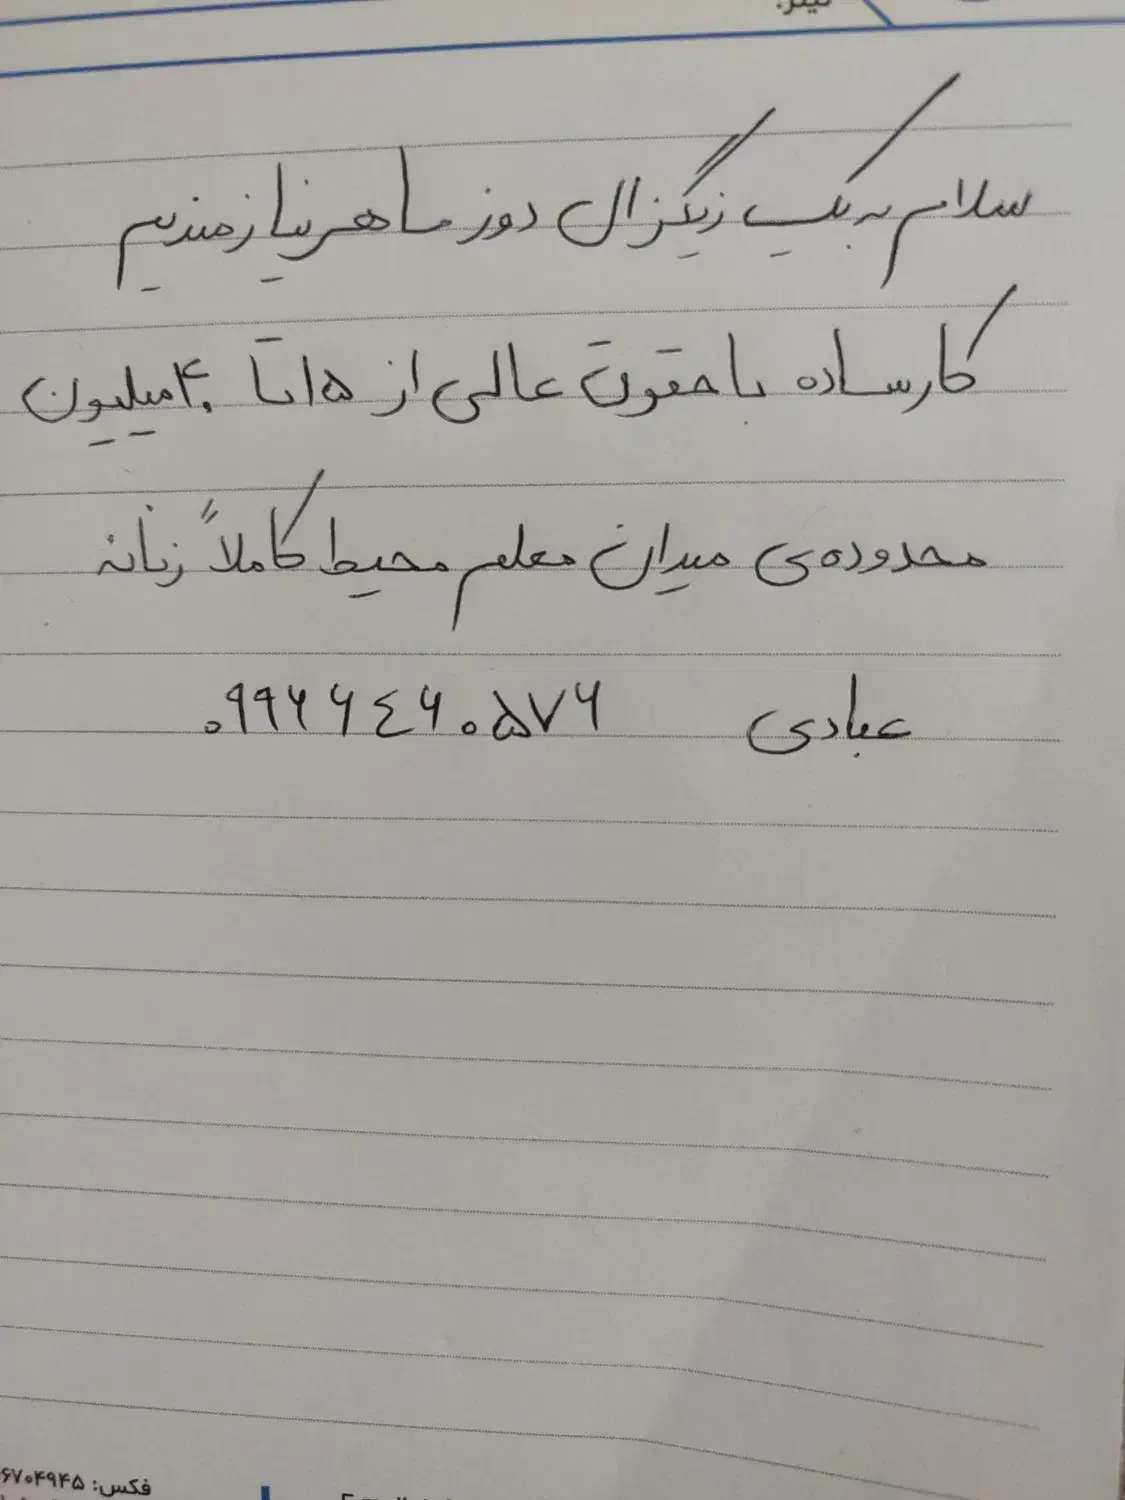 تیتر:
سلام به یک زیگزال دوز ماهر نیازمندیم
کار ساده با حقوق عالی از ۱۵ تا ۴۰ میلیون
محدوده‌ی میدان معلم محیط کاملاً زنانه
عبادی ۰۹۹۶۶۴۶۰۵۷۶
فکس: ۶۷۰۴۹۴۵